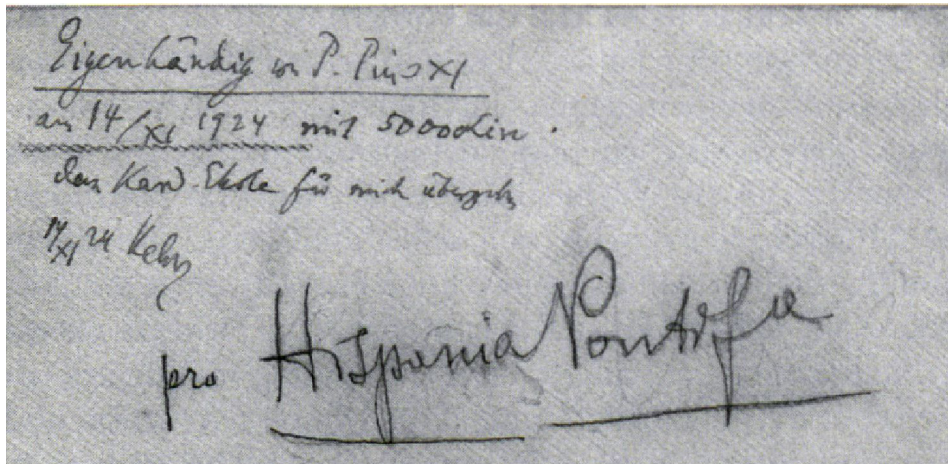 Eigenhändig von P. Pius XI
am 14/XI 1924 mit 50000 Lire.
dem Kard. Ehrle für mich übergeben
14/XI 24 Kehr
pro Hispania Pontificia